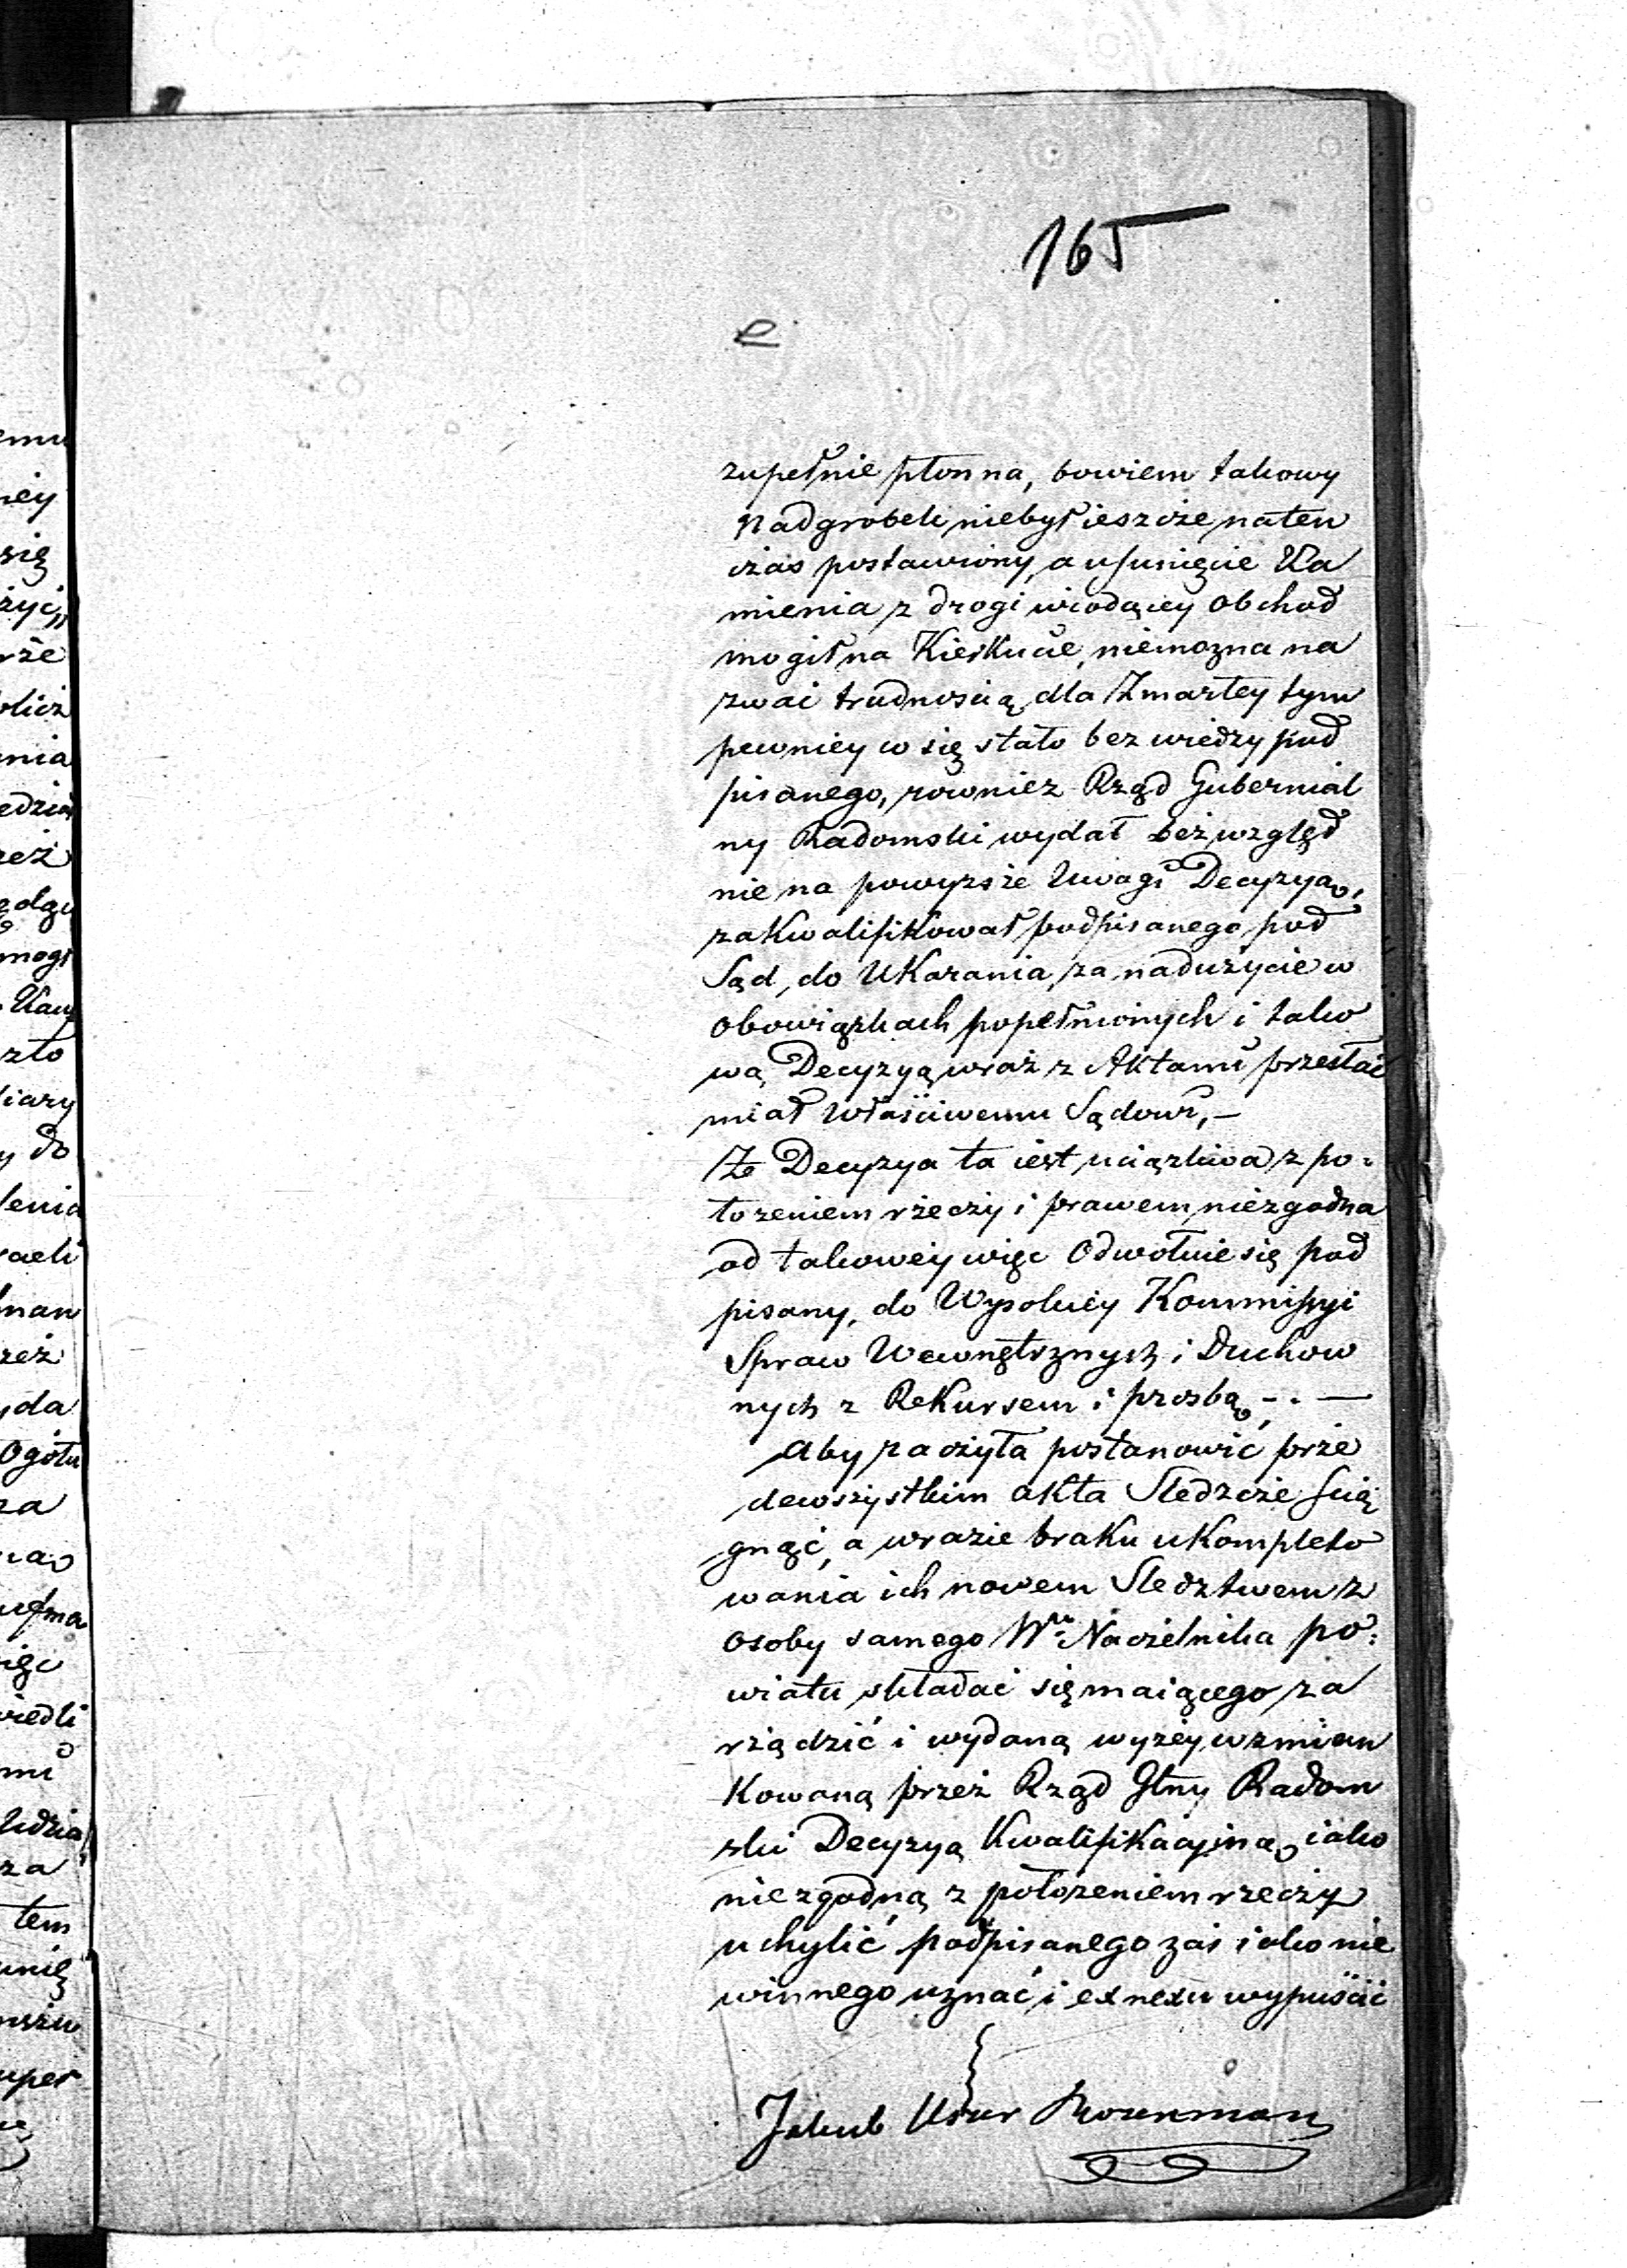 165
e
zupełnie płonna, bowiem takowy
Nadgrobek niebył ieszcze naten
czas postawiony, a usunięcie Ka
mienia z drogi wiodącey obchod
mogił na Kierkucie, niemozna na
zwać trudnością dla Zmarłey tym
pewniey co się stało bez wiedzy pod
pisanego, rownież Rząd Gubernial
ny Radomski wydał bezwzględ
nie na powyzsze Uwagi Decyzyą,
zakwalifikował podpisanego pod
Sąd, do Ukarania, za nadużycie w
obowiązkach popełnionych i tako
wą Decyzyą wraz z Aktami przesłać
miał Właściwemu Sądowi, —
Ze Decyzya ta iest uciązliwa z po:
łozeniem rzeczy i prawem niezgodna
od takowey więc Odwołuie się pod
pisany, do Wysokiey Kommissyi
Spraw Wewnętrznych i Duchow
nych z Rekursem i prozbą, —. —
Aby raczyła postanowić prze
dewszystkim akta Sledzcze scią
gnąć, a wrazie braku ukompleto
wania ich nowem Sledztwem z
osoby samego Wo Naczelnika po:
wiatu składać się maiącego za
rządzić i wydaną wyżey wzmian
kowaną przez Rząd Gtny Radom
ski Decyzyą Kwalifikacyiną iako
niezgodną z położeniem rzeczy
uchylić podpisanego zaś iako nie
winnego uznać i exnexu wypuścić
Jakub Uszer Rozenman
emu
ney
się
rze
nia
mogł
zło
y do
lenia
naeli
yda
Ogółu
za
tem